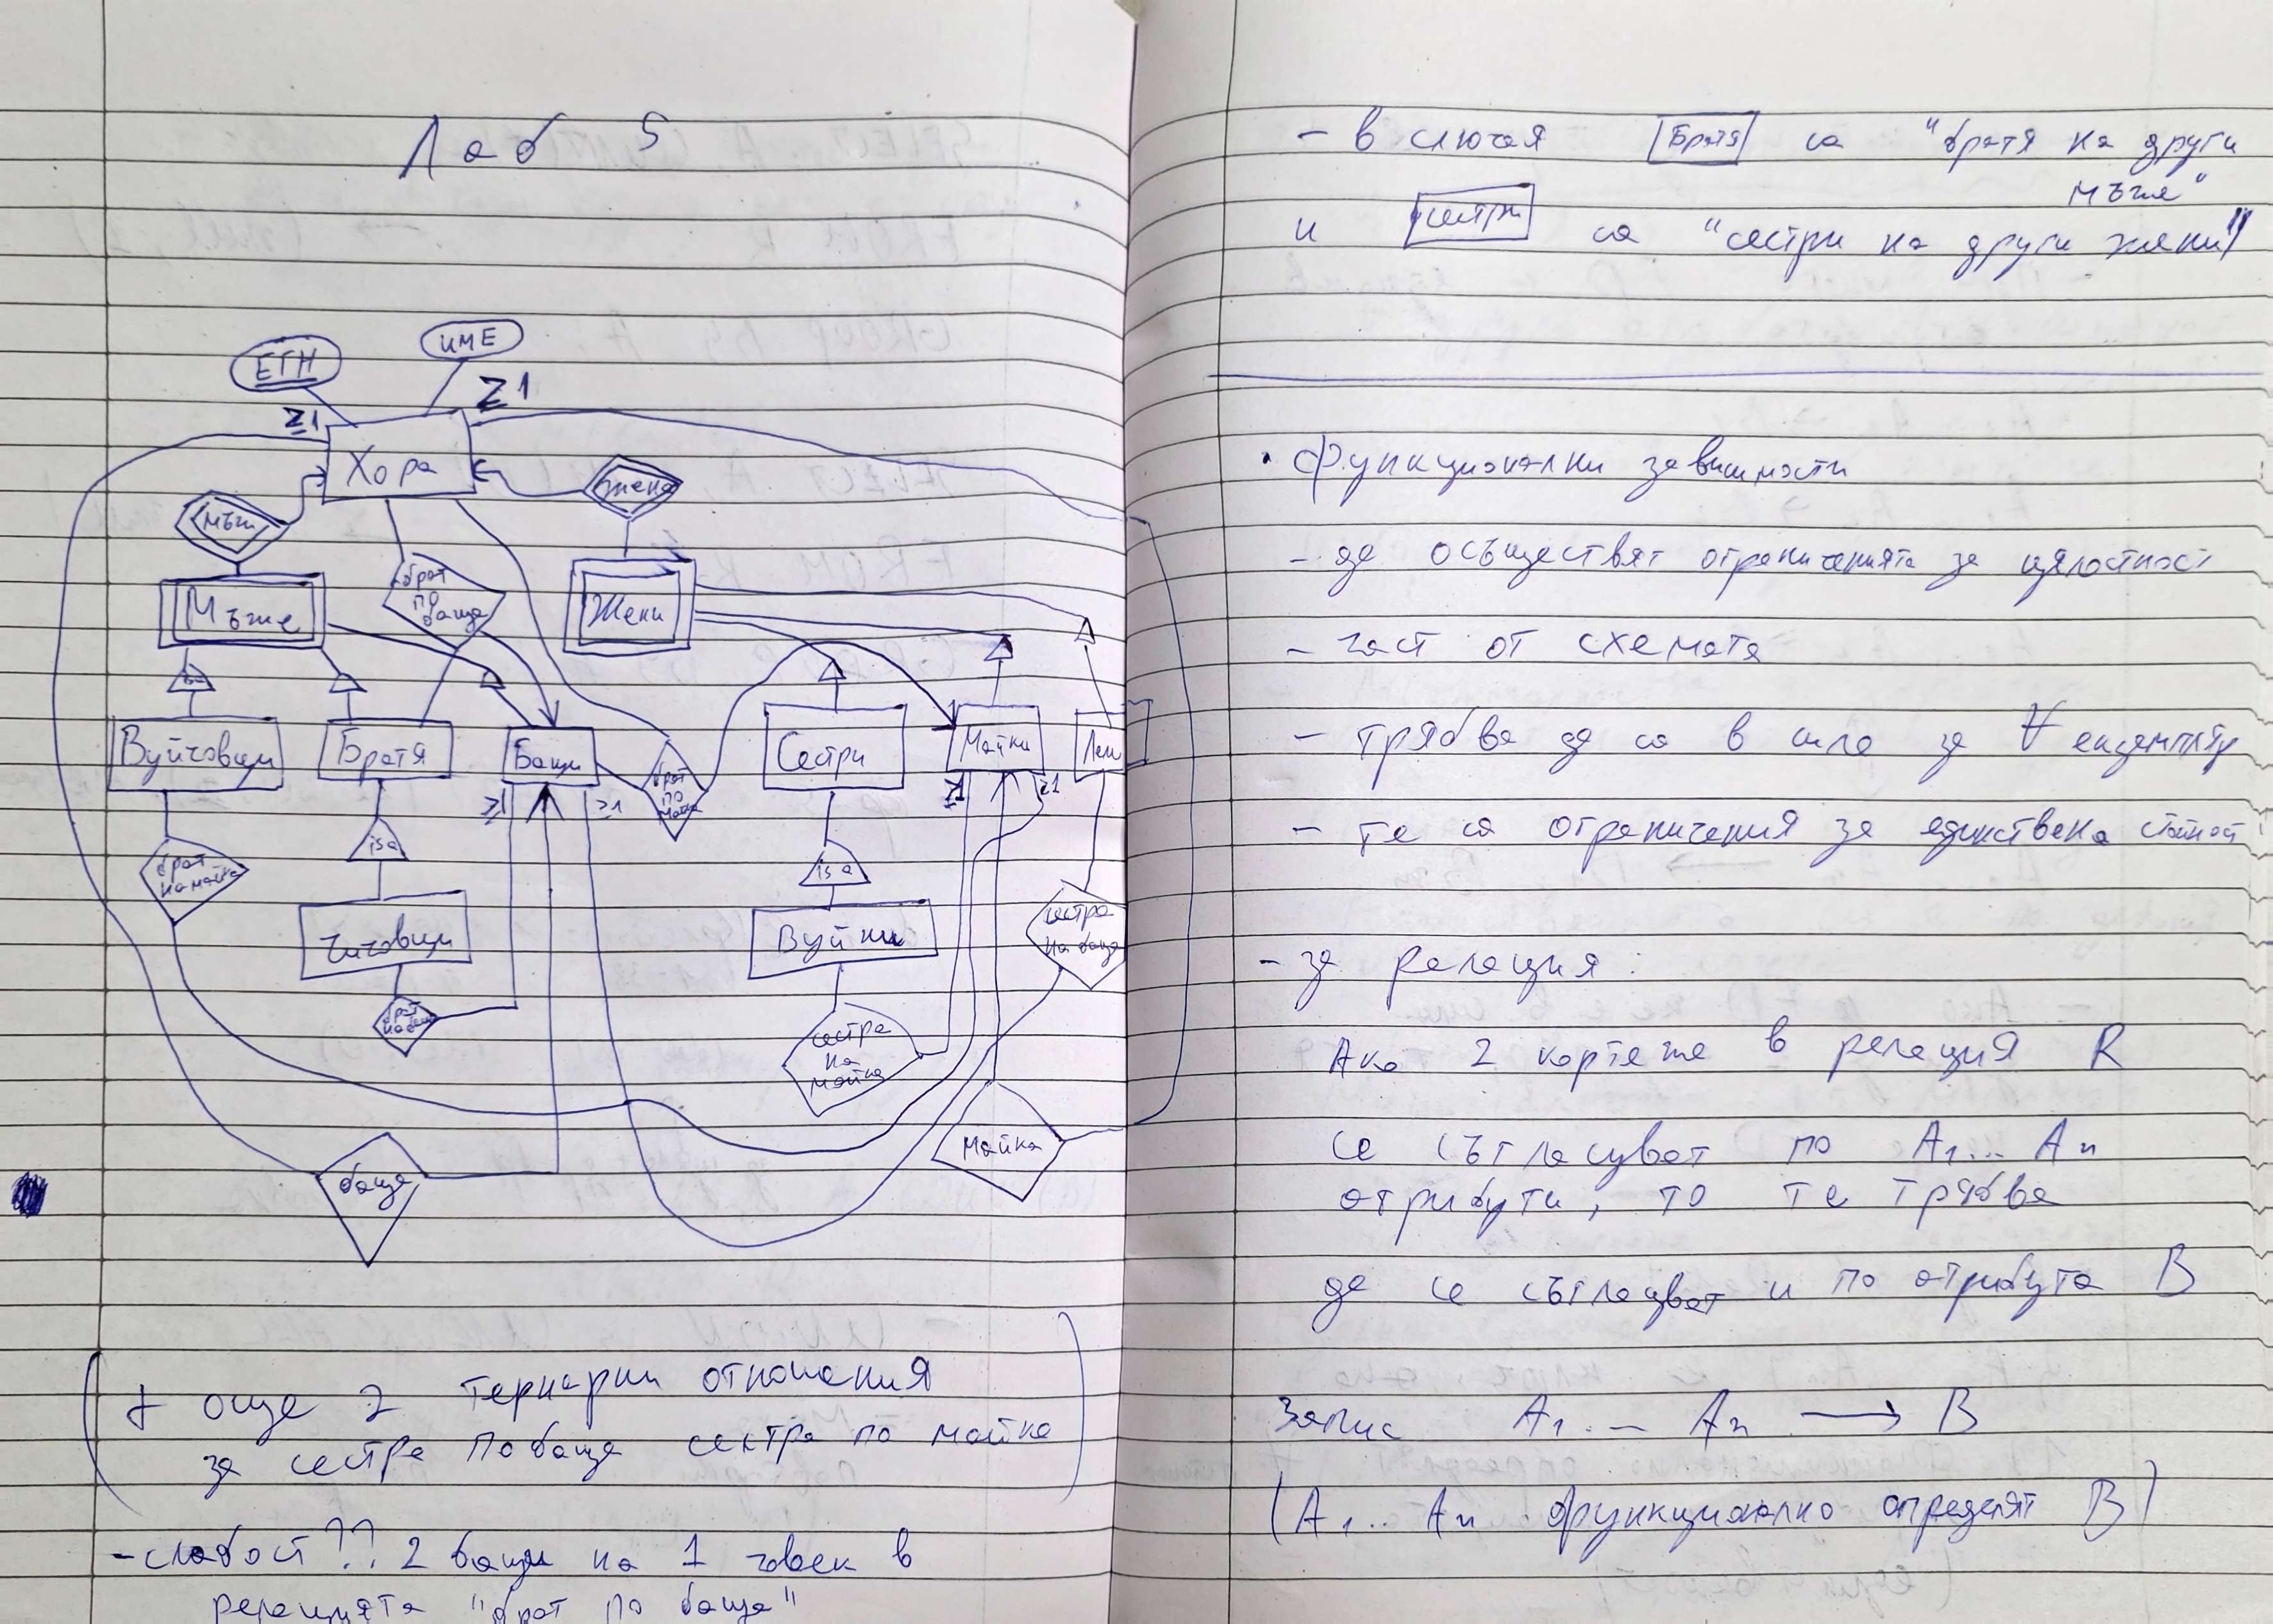 Лаб 5
ЕГН
име
≥1
≥1
Хора
мъж
жена
брат
по
баща
Мъже
Жени
isa
Вуйчовци
Братя
Бащи
брат
по
майка
Сестри
Майки
Лели
≥1
≥1
≥1
брат
на майка
isa
isa
сестра
на баща
Чичовци
Вуйни
брат
на баща
сестра
на
майка
Майка
баща
(+ още 2 тернарни отношения
за сестра по баща сестра по майка)
- слабост ?? 2 бащи на 1 човек в
релацията "брат по баща"
- в случая Братя са "братя на други
мъже"
и сестри са "сестри на други жени"
• функционални зависимости
- да осъществят ограниченията за цялостност
- част от схемата
- трябва да са в сила за ∀ екземпляр
- те са ограничения за единствена стойност
- за релация:
Ако 2 кортежа в релация R
се съгласуват по A₁... Aₙ
атрибути, то те трябва
да се съгласуват и по атрибута B
Запис A₁... Aₙ → B
(A₁... Aₙ функционално определят B)